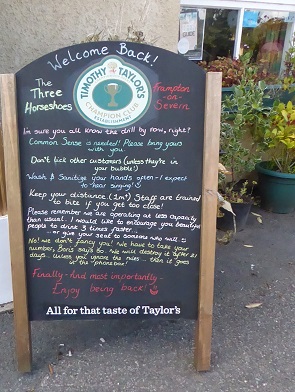 Welcome Back!
The
Three
Horseshoes
TIMOTHY TAYLOR'S
CHAMPION CLUB
Frampton
- on -
Severn
Im sure you all know the drill by now, right?
Common Sense is needed! Please bring yours
with you
Don't lick other customers (unless they're in
your bubble!)
Wash & Sanitise your hands often - I expect
to hear singing!
Keep your distance (1m+) Staff are trained
to bite if you get too close!
Please remember we are operating at less capacity
than usual. I would like to encourage you beautiful
people to drink 3 times faster ..
... or give your seat to someone who will
No! we don't fancy you! We have to take your
number, Boris says so. We will destroy it after 21
days.. Unless you ignore the rules.. then it goes
in the "phone box"
Finally - And most importantly -
Enjoy being back!
All for that taste of Taylor's